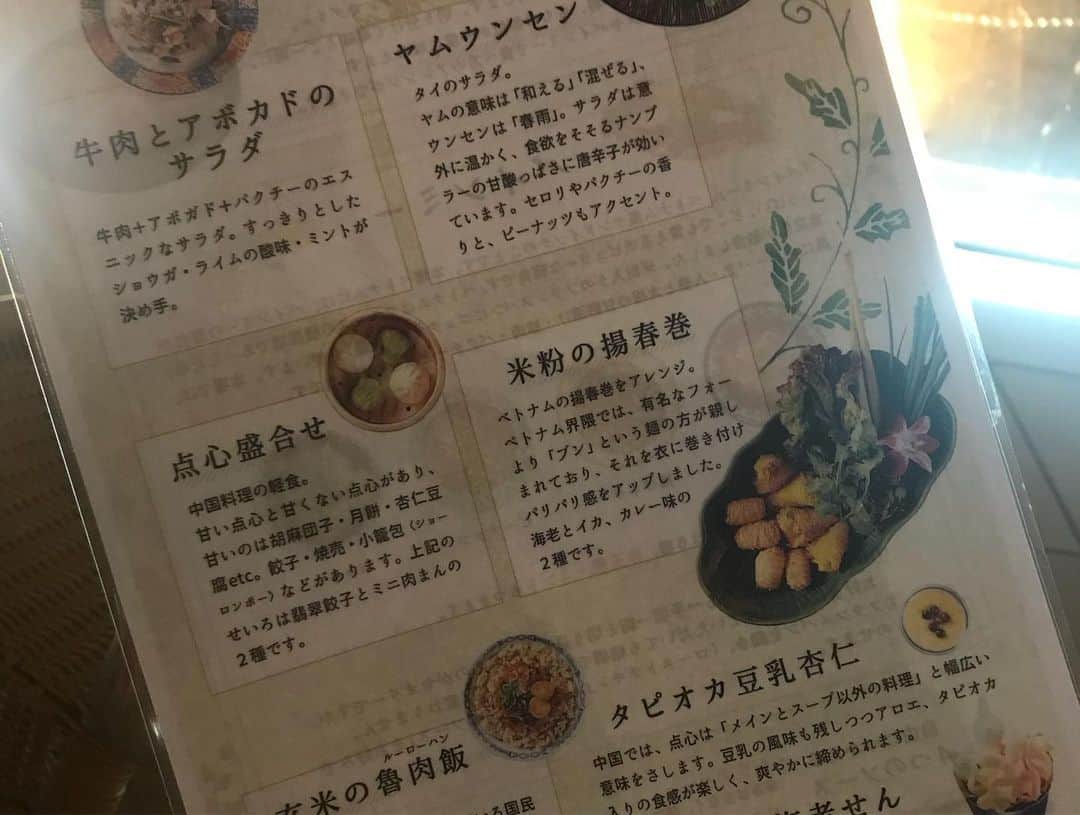 牛肉とアボカドの
サラダ
牛肉+アボガド+パクチーのエス
ニックなサラダ。すっきりとした
ショウガ・ライムの酸味・ミントが
決め手。
ヤムウンセン
タイのサラダ。
ヤムの意味は「和える」「混ぜる」、
ウンセンは「春雨」。サラダは意
外に温かく、食欲をそそるナンプ
ラーの甘酸っぱさに唐辛子が効い
ています。セロリやパクチーの香
りと、ピーナッツもアクセント。
点心盛合せ
中国料理の軽食。
甘い点心と甘くない点心があり、
甘いのは胡麻団子・月餅・杏仁豆
腐etc。餃子・焼売・小籠包（ショー
ロンポー）などがあります。上記の
せいろは翡翠餃子とミニ肉まんの
2種です。
米粉の揚春巻
ベトナムの揚春巻をアレンジ。
ベトナム界隈では、有名なフォー
より「ブン」という麺の方が親し
まれており、それを衣に巻き付け
パリパリ感をアップしました。
海老とイカ、カレー味の
2種です。
ルーローハン
玄米の魯肉飯
る国民
タピオカ豆乳杏仁
中国では、点心は「メインとスープ以外の料理」と幅広い
意味をさします。豆乳の風味も残しつつアロエ、タピオカ
入りの食感が楽しく、爽やかに締められます。
海老せん